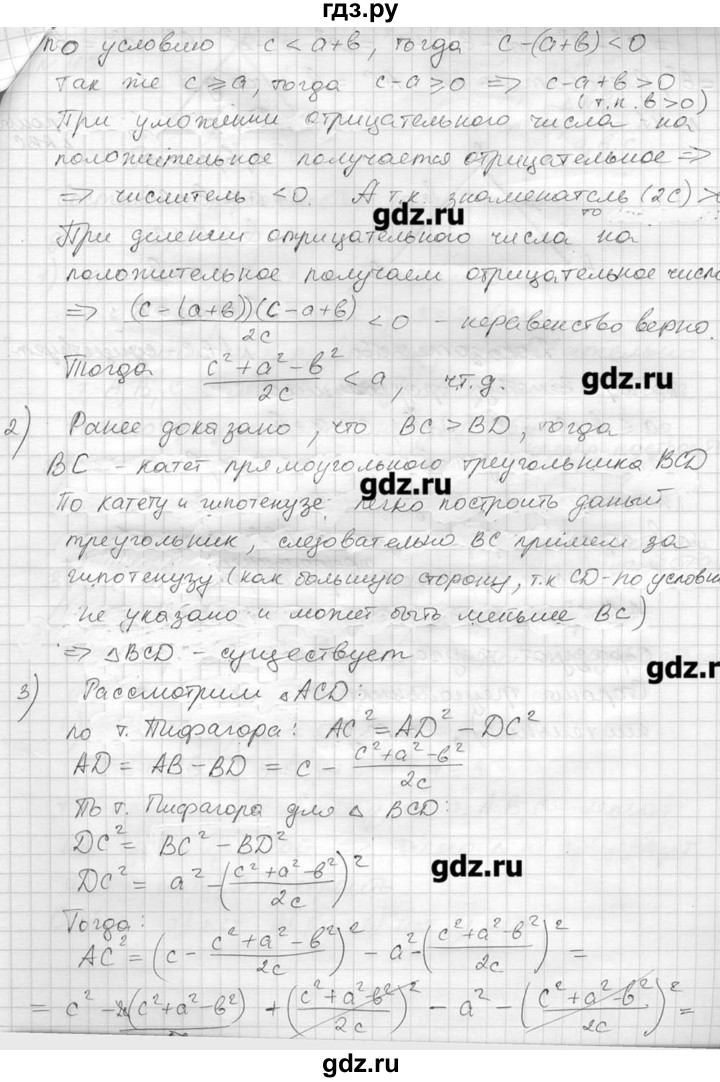 гдз.ру
по условию c < a+в, тогда c-(a+в) < 0
Так же c ⩾ a, тогда c-a ⩾ 0 => c-a+в > 0
(т.к. в>0)
При уможении отрицательного числа на
положительное получается отрицательное =>
=> числитель < 0. А т.к. знаменатель (2c) >
gdz.ru
то
При делении отрицательного числа на
положительное получаем отрицательное число
=> (c-(a+в))(c-a+в) / 2c < 0 - неравенство верно.
Тогда c² + a² - в² / 2c < a, чт.д.
gdz.ru
2) Ранее доказано, что BC > BD, тогда
BC - катет прямоугольного треугольника BCD
gdz.ru
По катету и гипотенузе легко построить даный
треугольник, следовательно BC примем за
гипотенузу (как большую сторону, т.к CD-по услови
не указано и может быть меньше BC)
=> △BCD - существует
gdz.ru
3) Рассмотрим △ACD:
по т. Пифагора: AC² = AD² - DC²
AD = AB - BD = c - c² + a² - в² / 2c
По т. Пифагора для △ BCD:
DC² = BC² - BD²
gdz.ru
DC² = a² - (c² + a² - в² / 2c)²
Тогда:
AC² = (c - c² + a² - в² / 2c)² - a² - (c² + a² - в² / 2c)² =
= c² - 2c(c² + a² - в²) / 2c + (c² + a² - в² / 2c)² - a² - (c² + a² - в² / 2c)² =
gdz.ru